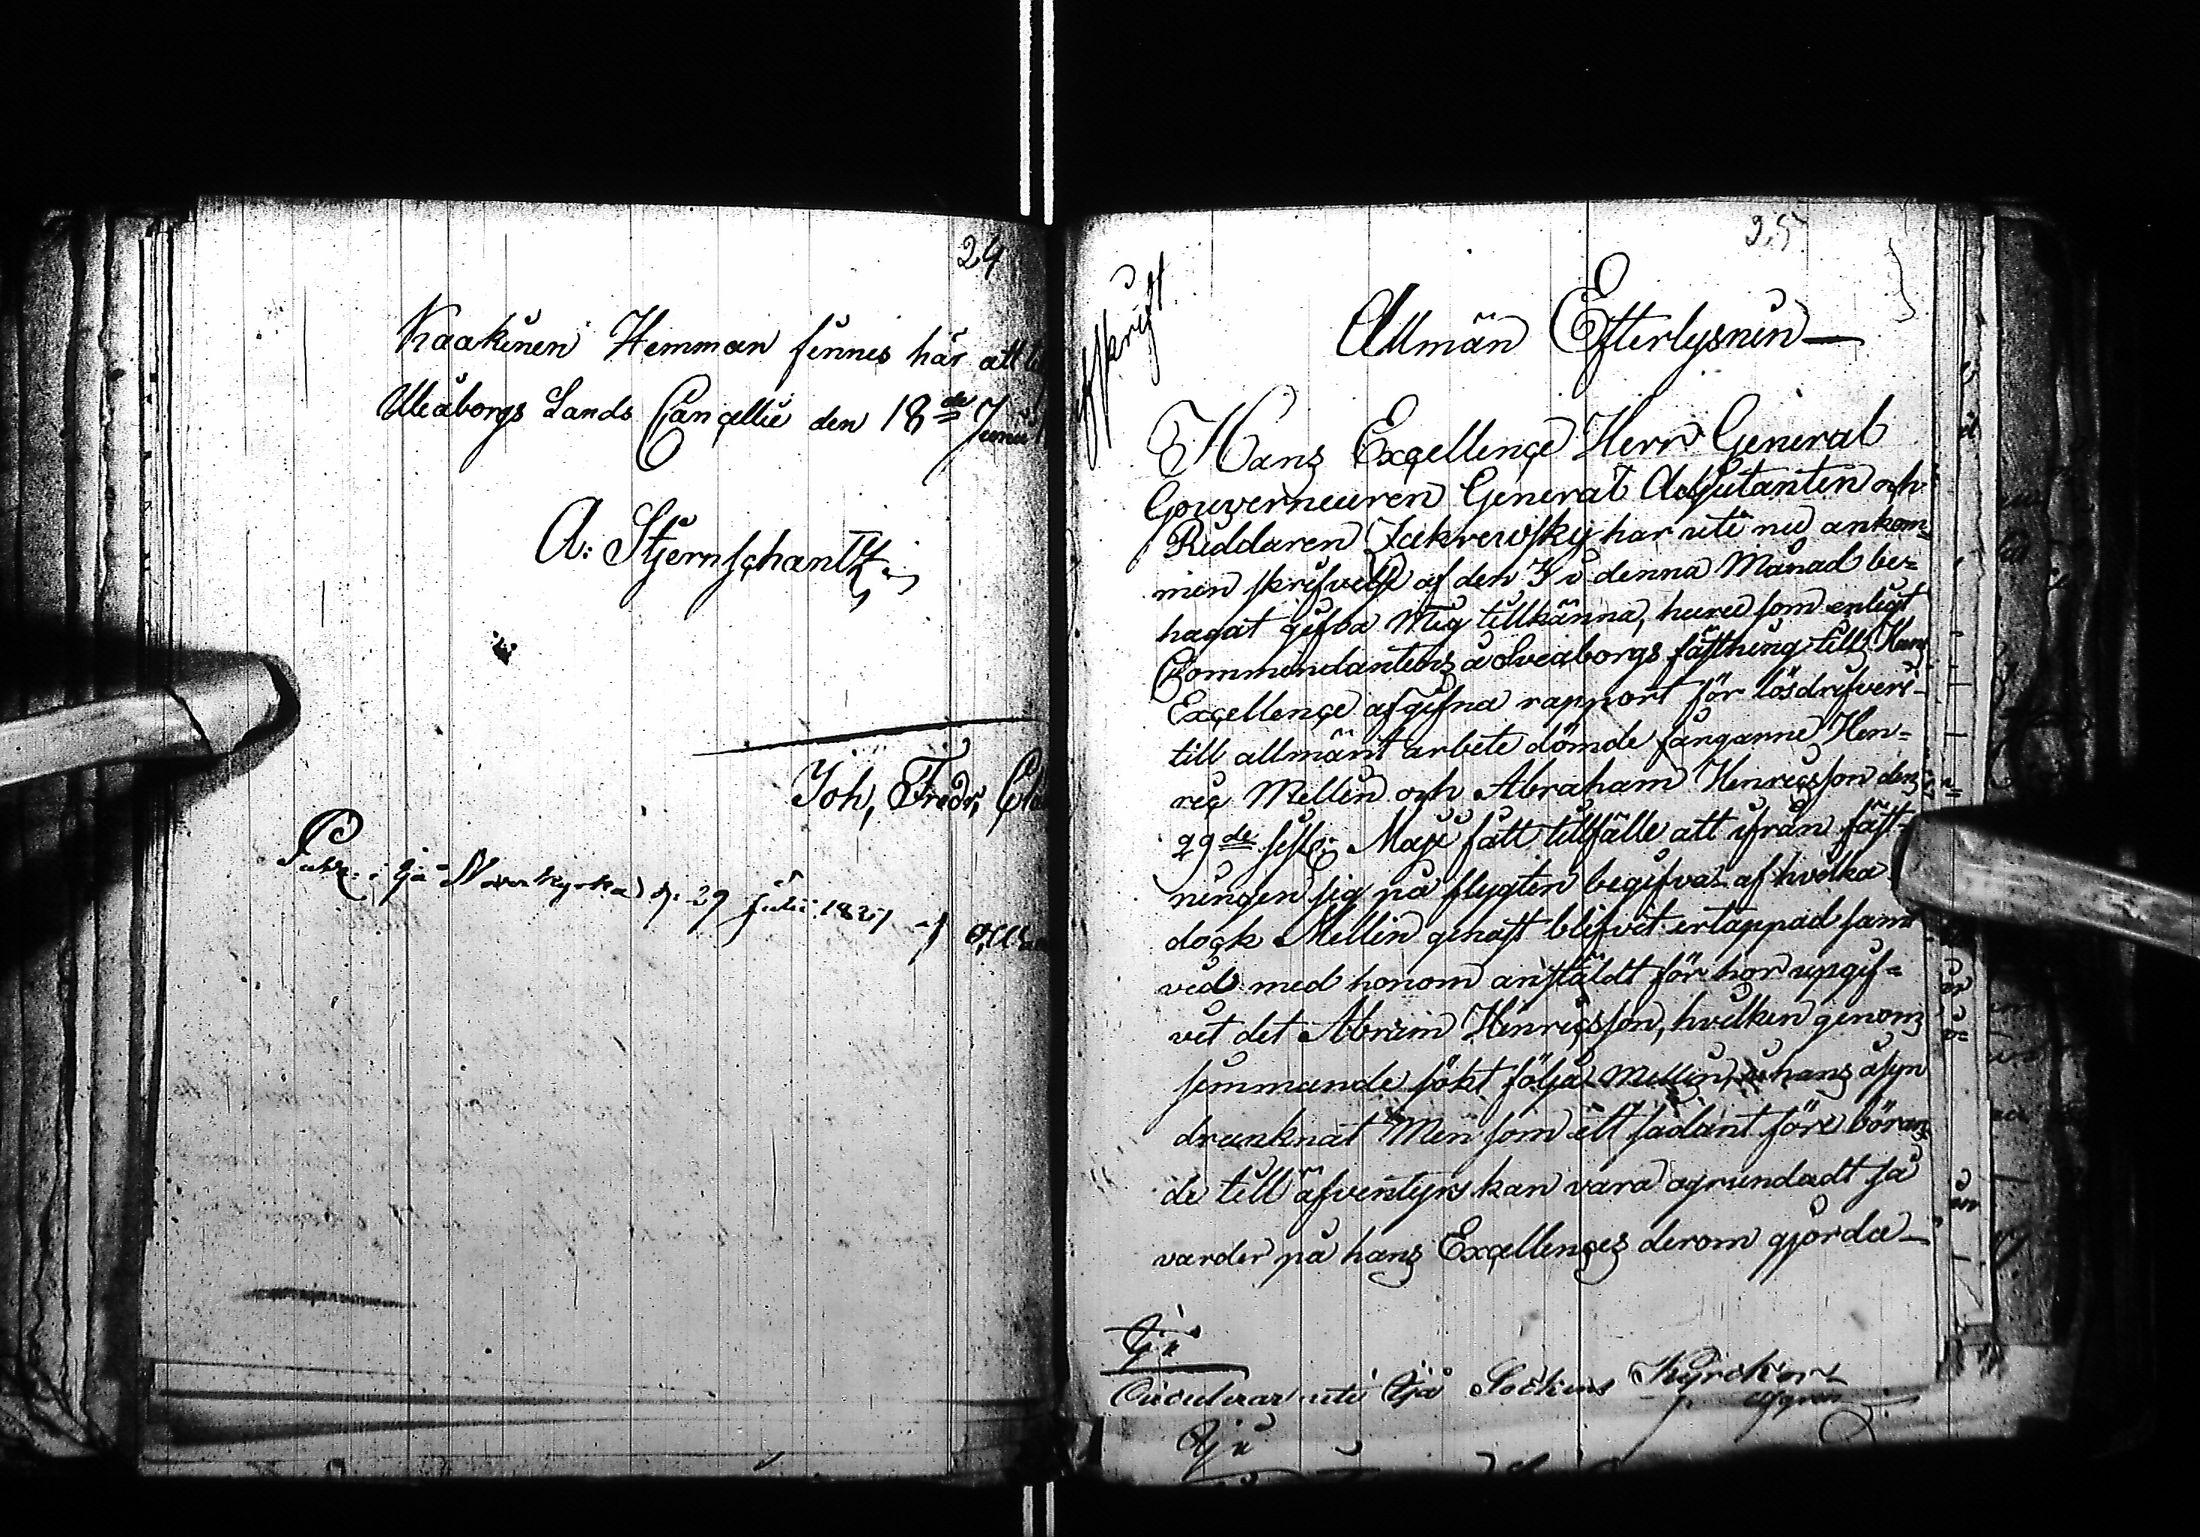 24
Kaakinen Hemman finnes här att
Uleåborgs Lands Cancellie den 18de Junii
A: Stjernschantz
Joh, Fredr,
Publ. i Ijå Moderkyrka d. 29 Julii 1827 af
25
Afskrift
Allmän Efterlysnin
Hans Excellence Herr General
Gouverneuren General Adjutanten och
Riddaren Zakrewsky har uti nu ankom=
men skrifvelse af den 3 i denna Månad be=
hagat gifva Mig tillkänna, huru som enligt
Commendantens å Sveaborgs fästning till Hans
Excellence afgifna rapport för lösdrifveri
till allmänt arbete dömde fångarne Hen=
ric Mellin och Abraham Henricsson den
29de sistl: Maji fått tillfälle att ifrån fäst=
ningen sig på flygten begifva af hvilka
dock Mellin genast blifvit ertappad samt
vid med honom anstäldt för hör upgif=
vit det Abram Henricsson, hvilken genom
simmande sökt följa Mellin, i hans åsyn
drunknat Men som ett sådant före böran
de till äfventyrs kan vara ogrundadt så
varder på hans Excellences derom gjorda
Ijå
Circulerar uti Ijå Sockens Kyrckior
Ijå